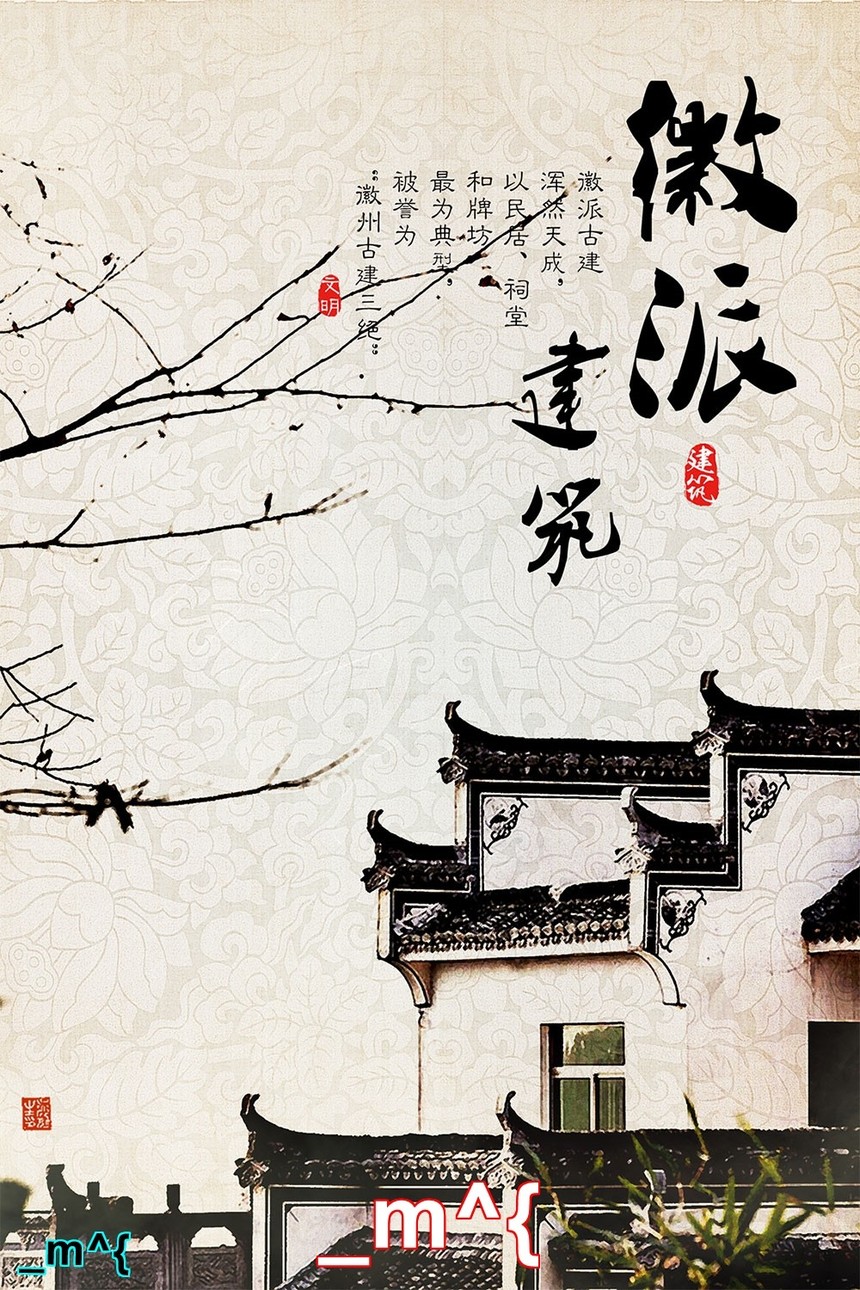 徽派
建筑
建筑
徽派古建
浑然天成，
以民居、祠堂
和牌坊
最为典型，
被誉为
“徽州古建三绝”。
文明
_m^{
_m^{